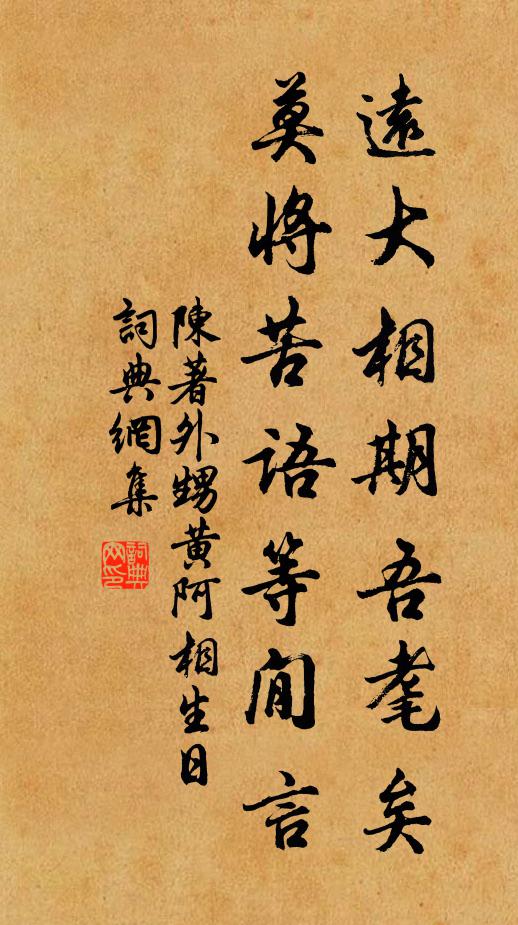 遠大相期吾耄矣
莫將苦語等閒言
陳著外甥黃阿相生日
詞典網集
詞典網印